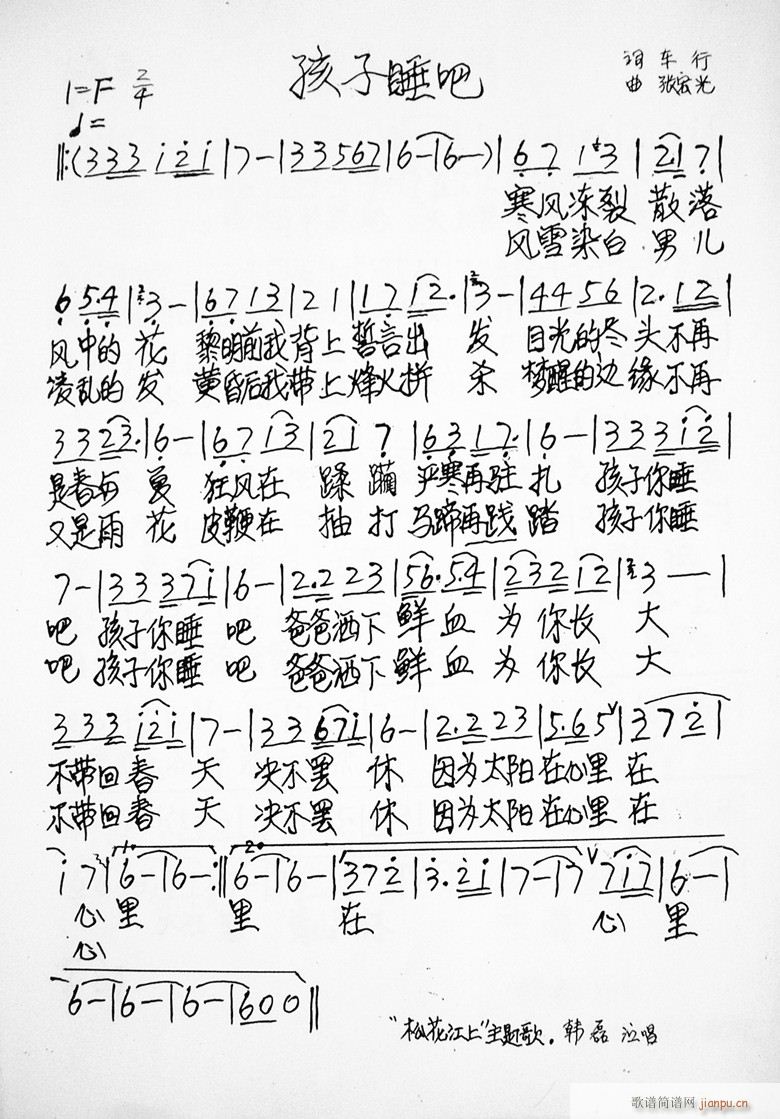 孩子睡吧
词 车行
曲 张宏光
1=F 2/4
♩=
‖:(333 i2i|7-|33567|6-|6-)|67 13|21 7|
寒风冻裂 散落
风雪染白 男儿
6 5·4|3-|67 13|2 1|17 12·|3-|44 56|2·12|
风中的 花 黎明前我 背上 誓言出 发 目光的尽 头不再
凌乱的 发 黄昏后我 带上 烽火拼 杀 梦醒的边 缘不再
33 23·|6-|67 i3|2i 7|63 17·|6-|333 i2|
是春与 夏 狂风在 蹂躏 严寒再驻 扎 孩子你睡
又是雨 花 皮鞭在 抽打 马蹄再践 踏 孩子你睡
7-|33 37i|6-|2·2 23|56·5·4|232 12|3--|
吧 孩子你睡 吧 爸爸洒下 鲜血 为你长 大
吧 孩子你睡 吧 爸爸洒下 鲜血 为你长 大
333 i2i|7-|33 67i|6-|2·2 23|5·65∨|372|
不带回春 天 决不罢 休 因为太阳在心里 在
不带回春 天 决不罢 休 因为太阳在心里 在
i7|6-|6-:‖6-|6-|372|3·2i|7-|7∨7i7|6-|
心 里 里 在 心 里
心
6-|6-|6-|600‖
“松花江上”主题歌. 韩磊 演唱
歌谱简谱网
jianpu.cn